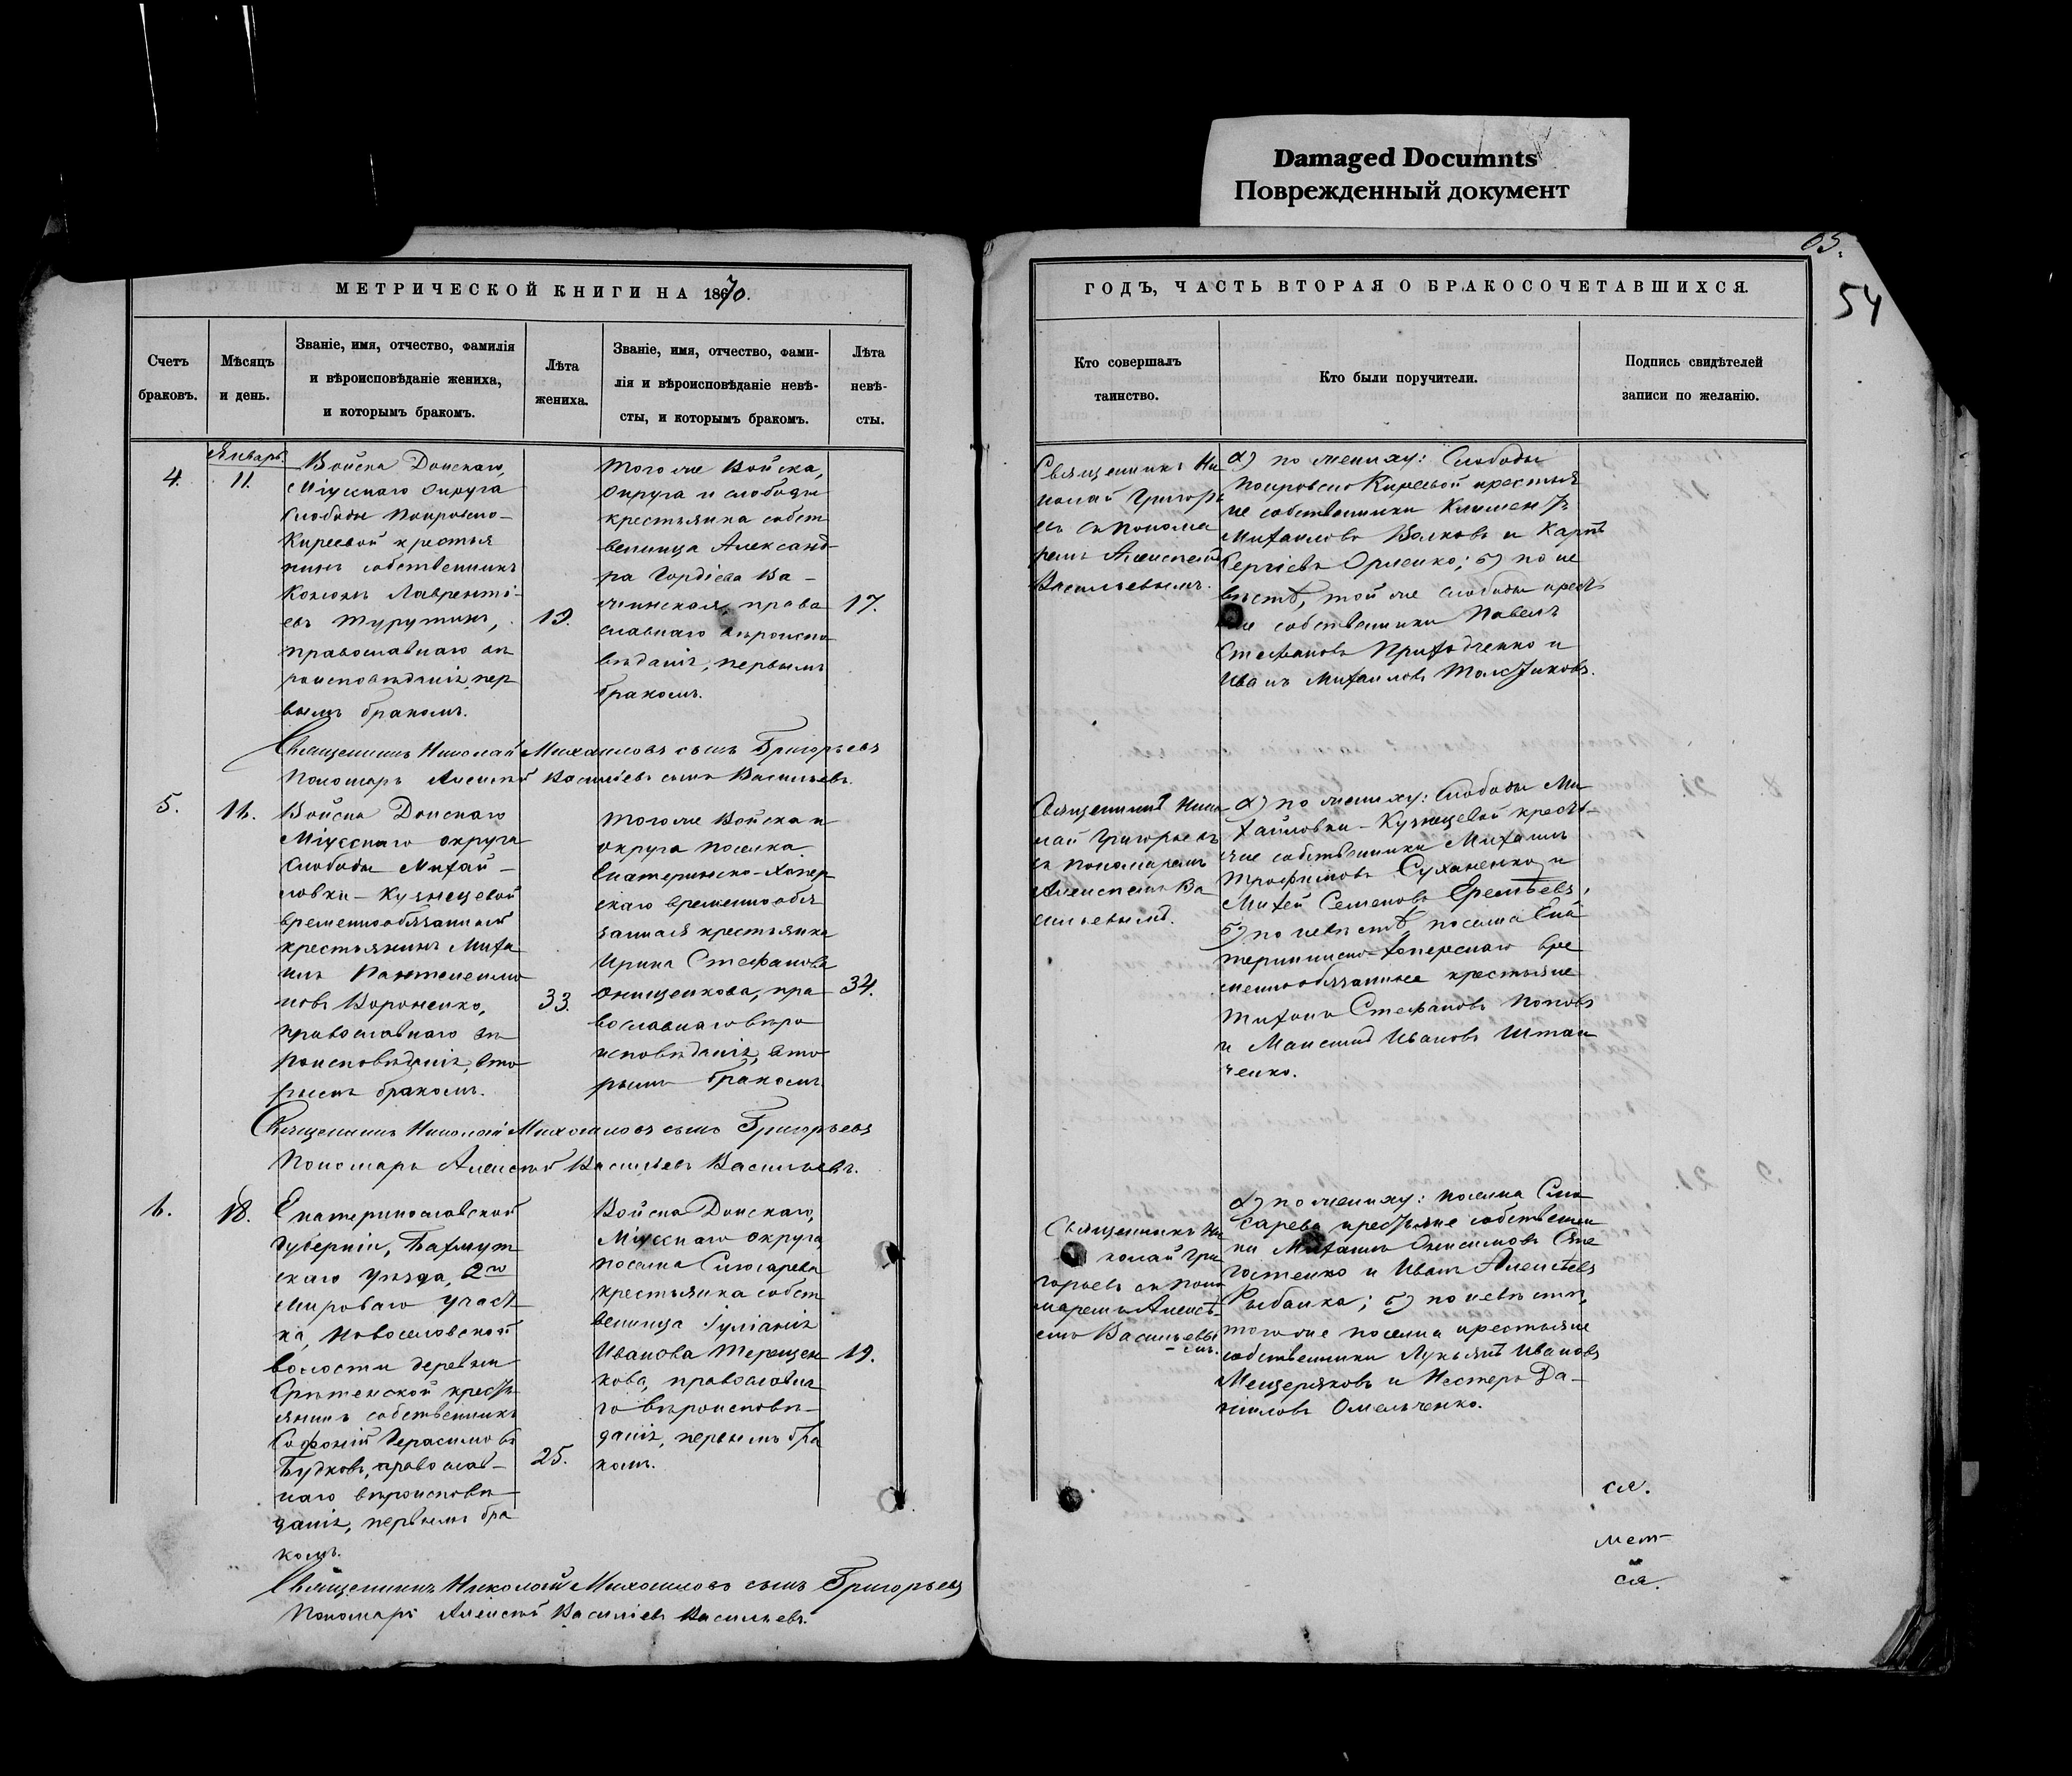 Damaged Documnts
Поврежденный документ
МЕТРИЧЕСКОЙ КНИГИ НА 1870.
Счетъ браковъ.
Мѣсяцъ и день.
Званіе, имя, отчество, фамилія
и вѣроисповѣданіе жениха,
и которымъ бракомъ.
Лѣта жениха.
Званіе, имя, отчество, фами-
лія и вѣроисповѣданіе невѣ-
сты, и которымъ бракомъ.
Лѣта невѣ-
сты.
4.
Январь.
11.
Войска Донскаго,
Міусскаго округа
слободы Покровско-
Киреевой крестья
нинъ собственникъ
Лавренті-
евъ Турутинъ,
православнаго вѣ
роисповѣданія, пер
вымъ бракомъ.
19.
Того же Войска,
округа и слободы
крестьянка собст
венница Александ-
ра Гордіева Ва-
право
славнаго вѣроиспо
вѣданія, первымъ
бракомъ.
17.
Священникъ Николай Михаиловъ сынъ Григорьевъ
Пономарь Алексѣй Васильевъ сынъ Васильевъ.
5.
16.
Войска Донскаго
Міусскаго округа
слободы Михай-
ловки-Кузнецевой
временнообязанный
крестьянинъ Миха
илъ Пантелеимо
новъ Вороненко,
православнаго вѣ
роисповѣданія, вто
рымъ бракомъ.
33.
Того же Войска и
округа поселка
Екатериненско-Хопер
скаго временнообя
занная крестьянка
Ирина Стефанова
Онищенкова, пра
вославнаго вѣро
исповѣданія, вто
рымъ бракомъ
34.
Священникъ Николай Михаиловъ сынъ Григорьевъ
Пономарь Алексѣй Васильевъ Васильевъ.
6.
18.
Екатеринославской
Губерніи, Бахмут
скаго уѣзда, 2го
Мироваго участ
ка, Новоселовской
волости деревни
Срѣтенской кресть
янинъ собственникъ
Софоній Герасимовъ
Будковъ, православ-
наго вѣроисповѣ
данія, первымъ бра
комъ.
25.
Войска Донскаго,
Міусскаго округа,
поселка Слюсарева
крестьянка собст
венница Іуліанія
Иванова Терещен
кова, православна
го вѣроисповѣ-
данія, первымъ бра
комъ.
19.
Священникъ Николай Михаиловъ сынъ Григорьевъ
Пономарь Алексѣй Васильевъ Васильевъ.
ГОДЪ, ЧАСТЬ ВТОРАЯ О БРАКОСОЧЕТАВШИХСЯ.
54
Кто совершалъ
таинство.
Кто были поручители.
Подпись свидѣтелей
записи по желанію.
Священникъ Ни
колай Григорь
евъ съ понома
ремъ Алексѣемъ
Васильевымъ.
а) по жениху: слободы
Покровско Киреевой крестья
не собственники Климентъ
Михаиловъ Волковъ и Карпъ
Сергіевъ Орленко; б) по не
вѣстѣ, той же слободы кресть
яне собственники Павелъ
Стефановъ Приходченко и
Иванъ Михаиловъ Толстиковъ.
Священникъ Нико
лай Григорьевъ
съ пономаремъ
Алексѣемъ Ва
сильевымъ.
а) по жениху: слободы Ми
хайловки-Кузнецевой кресть-
яне собственники Михаилъ
Трофимовъ Суханенко и
Михей Семеновъ Еремѣевъ;
б) по невѣстѣ, поселка Ека
терининско-Хоперскаго вре
меннообязанные крестьяне
Тихонъ Стефановъ Поповъ
и Максимъ Ивановъ Штан
ченко.
Священникъ Ни
колай Гри
горьевъ съ поно
маремъ Алексѣ
емъ Васильевы
-мъ.
а) по жениху: поселка Слю
сарева крестьяне собственни
ки Михаилъ Онисимовъ
и Иванъ Алексѣевъ
Рыбалка; б) по невѣстѣ,
того же поселка крестьяне
собственники Лукьянъ Ивановъ
Мещеряковъ и Несторъ Да-
ниловъ Омельченко.
ся.
мет-
ся.